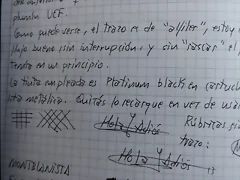 plumín UEF.
Como puede verse, el trazo es de "alfiler", estoy
flujo bueno sin interrupción, y sin "rascar" el
tenía en un principio.
La tinta empleada es Platinum black en cartuch
ista metálica. Quizás lo recargue en vez de usar
Rúbricas
Hola y Adiós trazo:
Hola y Adiós
MONTBLANISTA